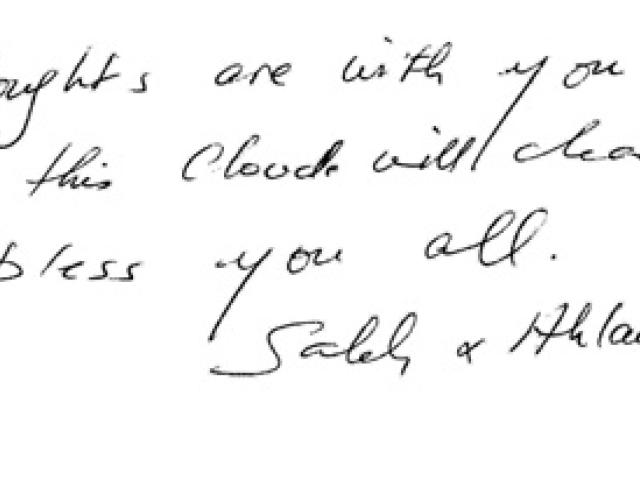 oughts are with you
this Clouds will clea
bless you all.
Saleh & Ahla